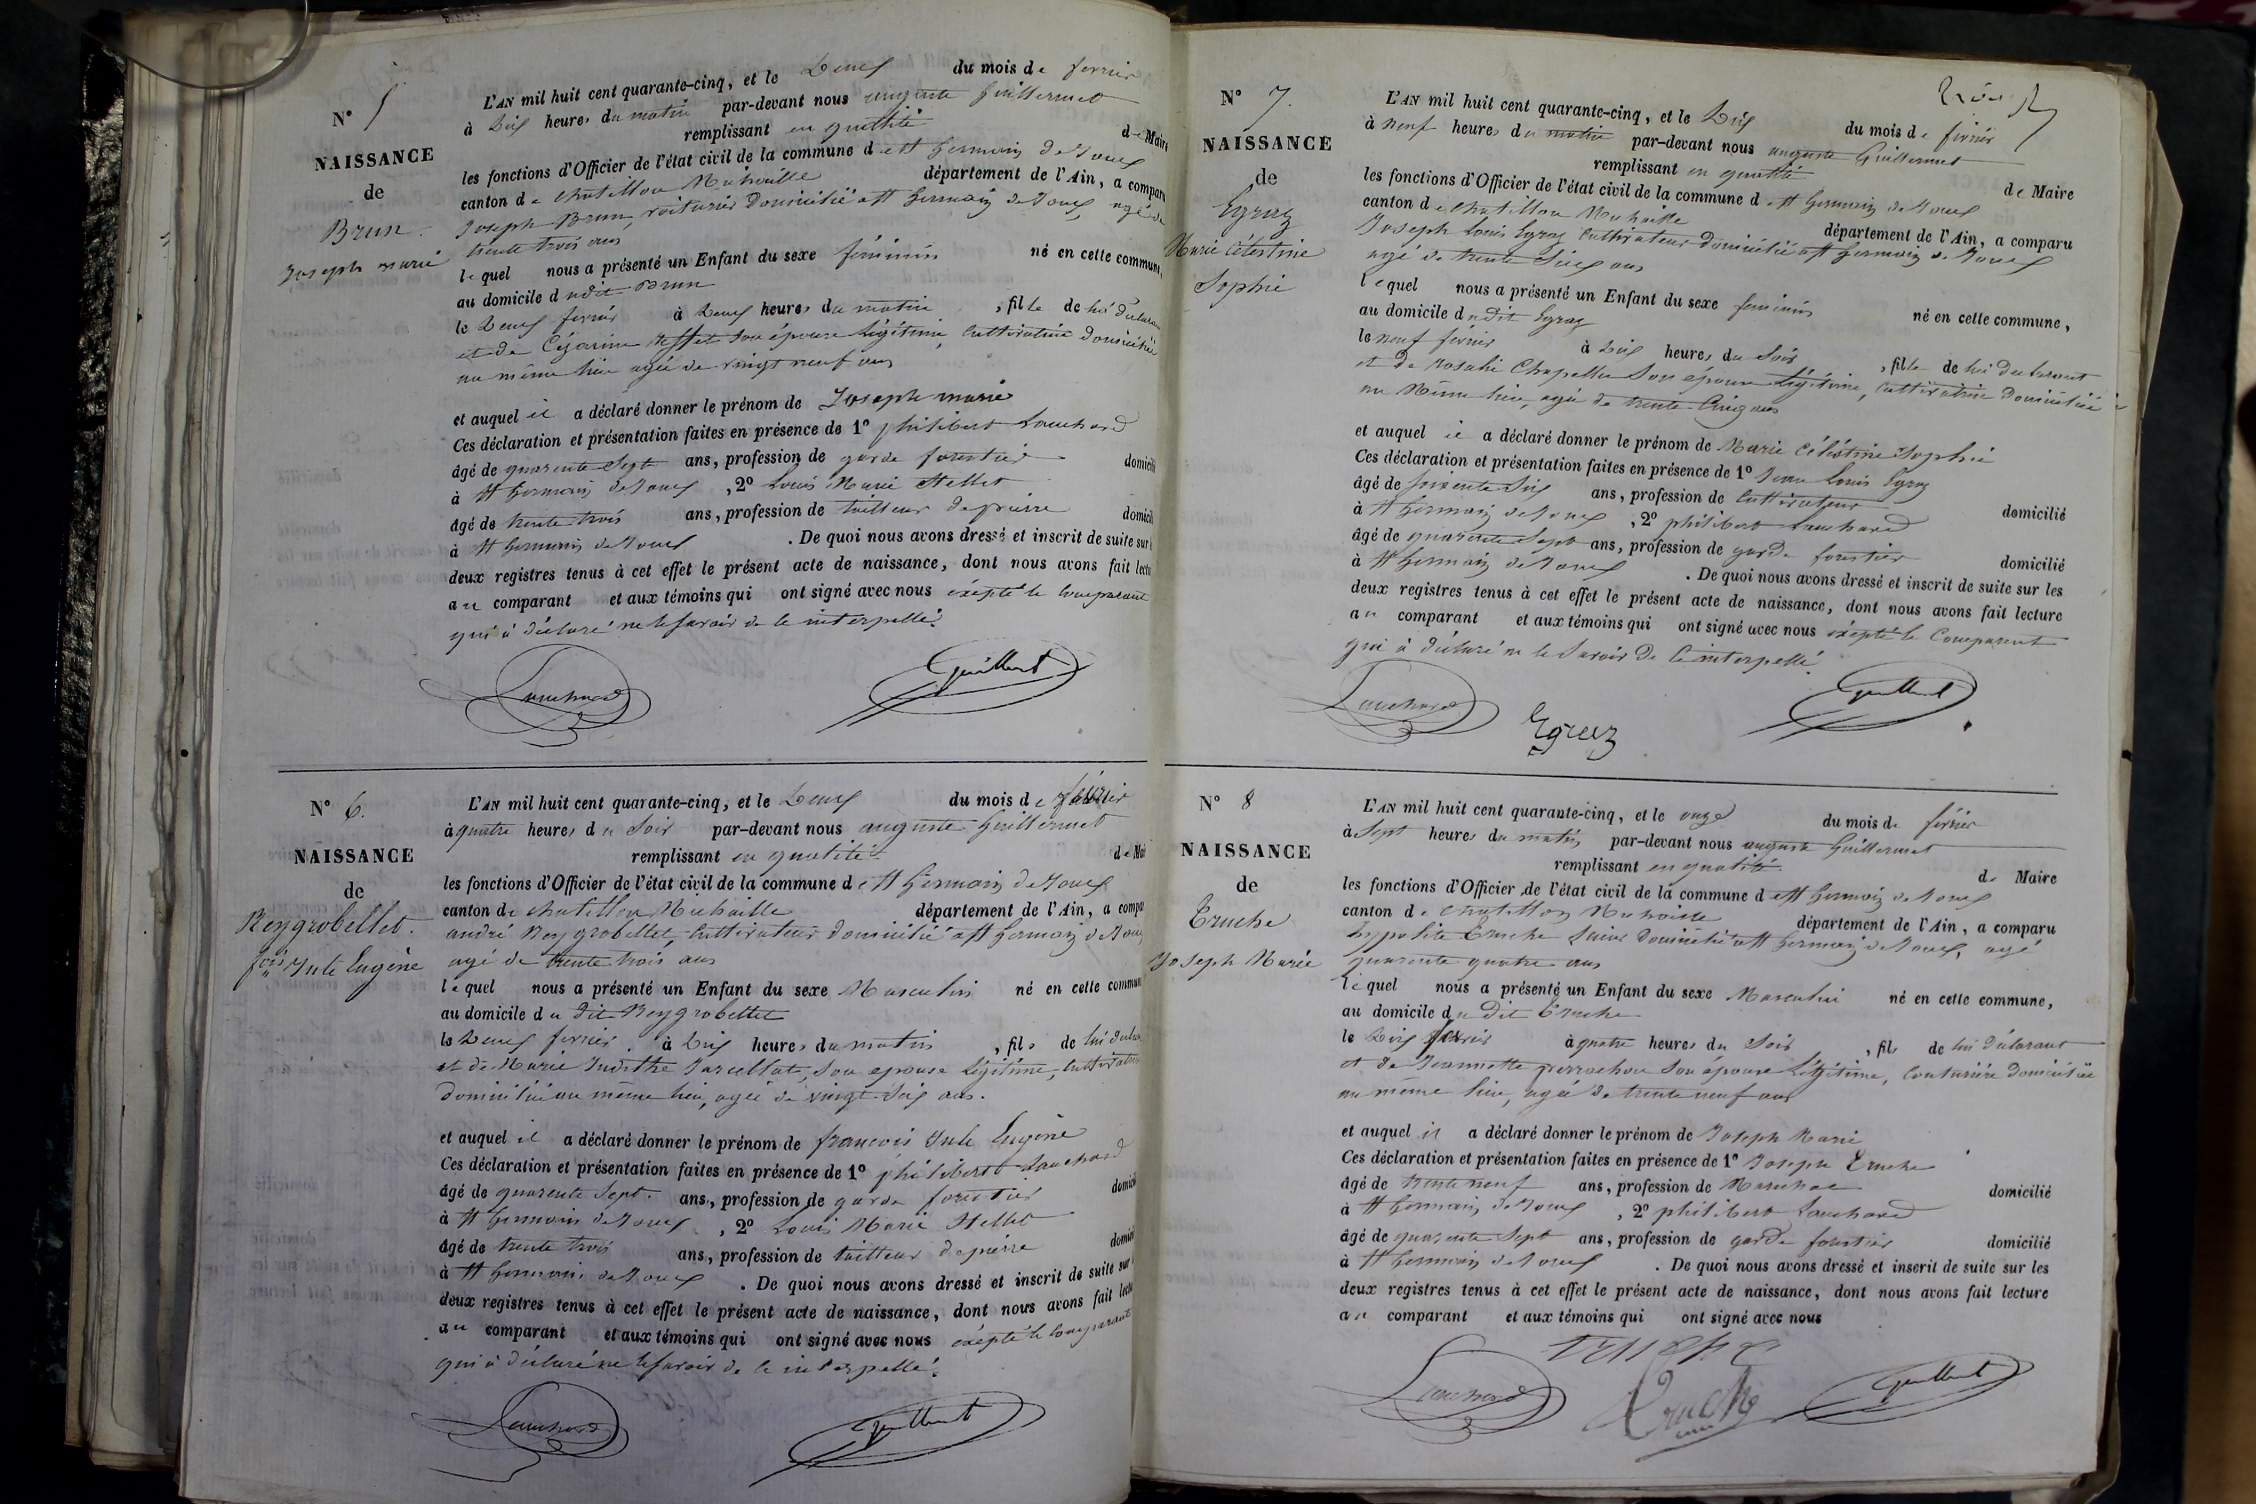 N° 5
NAISSANCE
de
Brun
Joseph marie
L'AN mil huit cent quarante-cinq, et le Deux du mois de fevrier
à Dix heures du matin par-devant nous auguste Guillermet
remplissant en qualité de Maire
les fonctions d'Officier de l'état civil de la commune de St Germain de Joux
canton de chatillon Michaille département de l'Ain, a comparu
Joseph Brun, voiturier Domicilié a St Germain de Joux, agé de
trente trois ans
lequel nous a présenté un Enfant du sexe féminin né en cette commune,
au domicile dudit Brun
le Deux fevrier à Deux heures du matin, fille de lui déclarant
et de Cézarine son épouse légitime, cultivatrice domiciliée
au même lieu agée de vingt neuf ans
et auquel il a déclaré donner le prénom de Joseph marie
Ces déclaration et présentation faites en présence de 1° philibert Lauchard
âgé de quarente Sept ans, profession de garde forestier domicilié
à St Germain de Joux, 2° Louis Marie
âgé de trente trois ans, profession de tailleur de pierre domicilié
à St Germain de Joux. De quoi nous avons dressé et inscrit de suite sur
deux registres tenus à cet effet le présent acte de naissance, dont nous avons fait lecture
au comparant et aux témoins qui ont signé avec nous éxépté le comparant
qui à déclaré ne le savoir de ce interpellé.
Lauchard Guillermet
N° 6.
NAISSANCE
de
Reygrobellet.
fois Jule Eugène
L'AN mil huit cent quarante-cinq, et le Deux du mois de février
à quatre heures du Soir par-devant nous auguste Guillermet
remplissant en qualité de Maire
les fonctions d'Officier de l'état civil de la commune de St Germain de Joux
canton de chatillon Michaille département de l'Ain, a comparu
andré Reygrobellet, cultivateur domicilié a St Germain de Joux
agé de trente trois ans
lequel nous a présenté un Enfant du sexe Masculin né en cette commune
au domicile du dit Reygrobellet
le Deux fevrier à Dix heures du matin, fils de lui déclarant
et de Marie Judithe son epouse légitime, cultivatrice
Domiciliée au même lieu, agée de vingt Six ans.
et auquel il a déclaré donner le prénom de françois Jule Eugène
Ces déclaration et présentation faites en présence de 1° philibert Lauchard
âgé de quarente Sept. ans, profession de garde forestier domicilié
à St Germain de Joux, 2° Louis Marie
âgé de trente trois ans, profession de tailleur de pierre domicilié
à St Germain de Joux. De quoi nous avons dressé et inscrit de suite sur
deux registres tenus à cet effet le présent acte de naissance, dont nous avons fait lecture
au comparant et aux témoins qui ont signé avec nous éxépté le comparant
qui à déclaré ne le savoir de ce interpellé.
Lauchard Guillermet
N° 7.
NAISSANCE
de
Egraz
Marie Célestine
Sophie
L'AN mil huit cent quarante-cinq, et le Dix du mois de février
à neuf heures du matin par-devant nous auguste Guillermet
remplissant en qualité de Maire
les fonctions d'Officier de l'état civil de la commune de St Germain de Joux
canton de chatillon Michaille département de l'Ain, a comparu
Joseph Louis Egraz cultivateur domicilié a St Germain de Joux
agé de trente Six ans
lequel nous a présenté un Enfant du sexe feminin né en cette commune,
au domicile dudit Egraz
le neuf février à Dix heures du Soir, fille de lui declarant
et de Rosalie Chapelle Son épouse légitime, cultivatrice Domiciliée
au Même lieu, agée de trente Cinq ans
et auquel il a déclaré donner le prénom de Marie Célestine Sophie
Ces déclaration et présentation faites en présence de 1° Jean Louis Egraz
âgé de soixente Six ans, profession de Cultivateur domicilié
à St Germain de Joux, 2° philibert Lauchard
âgé de quarente Sept ans, profession de garde forestier domicilié
à St Germain de Joux. De quoi nous avons dressé et inscrit de suite sur les
deux registres tenus à cet effet le présent acte de naissance, dont nous avons fait lecture
au comparant et aux témoins qui ont signé avec nous éxépté le Comparant
qui à déclaré ne le Savoir de ce interpellé
Lauchard Egraz Guillermet
N° 8
NAISSANCE
de
Truche
Joseph Marie
L'AN mil huit cent quarante-cinq, et le onze du mois de février
à Sept heures du matin par-devant nous auguste Guillermet
remplissant en qualité de Maire
les fonctions d'Officier de l'état civil de la commune de St Germain de Joux
canton de chatillon Michaille département de l'Ain, a comparu
hypolite Truche Domicilié a St Germain de Joux, agé
quarente quatre ans
lequel nous a présenté un Enfant du sexe Masculin né en cette commune,
au domicile du Dit Truche
le Dix février à quatre heures du Soir, fils de lui déclarant
et de Jeannette perrachon Son épouse Légitime, Couturière domiciliée
au même lieu, agée de trente neuf ans
et auquel il a déclaré donner le prénom de Joseph Marie
Ces déclaration et présentation faites en présence de 1° Joseph Truche
âgé de trente neuf ans, profession de Maréchal domicilié
à St Germain de Joux, 2° philibert Lauchard
âgé de quarente Sept ans, profession de garde forestier domicilié
à St Germain de Joux. De quoi nous avons dressé et inscrit de suite sur les
deux registres tenus à cet effet le présent acte de naissance, dont nous avons fait lecture
au comparant et aux témoins qui ont signé avec nous
Lauchard Truche Guillermet